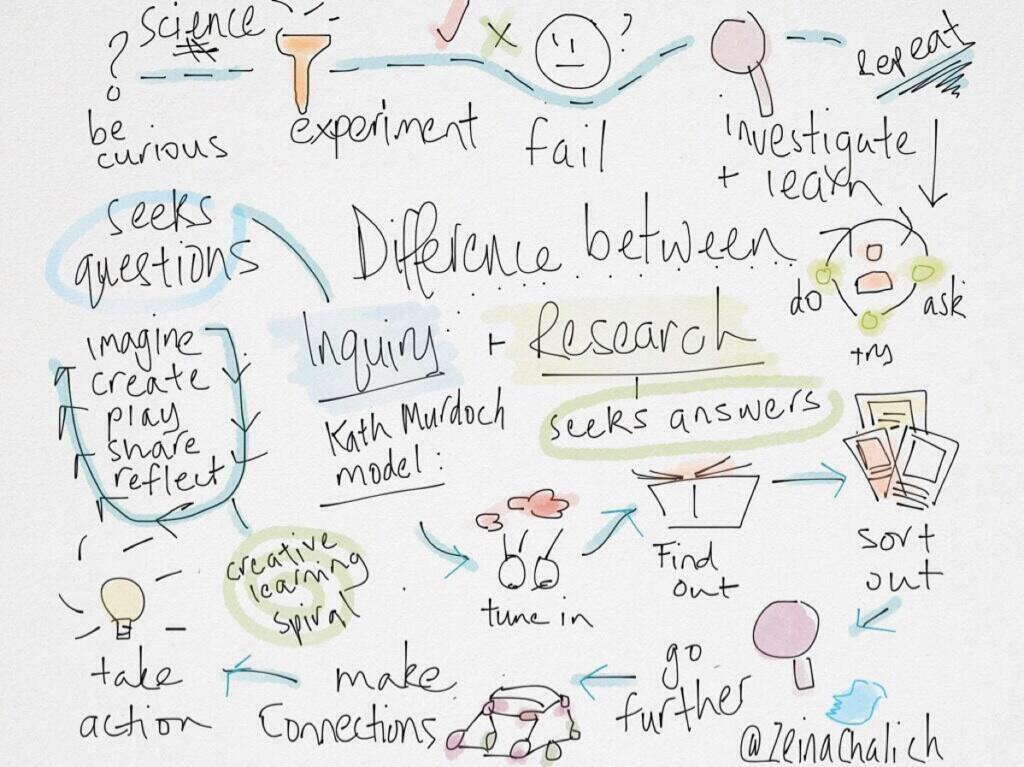 science
?
be
curious
experiment
?
fail
investigate
+ learn
Repeat
seeks
questions
Difference between
Inquiry + Research
do
ask
try
imagine
create
play
share
reflect
Kath Murdoch
model:
seeks answers
creative
learning
spiral
tune in
Find
out
sort
out
go
further
make
Connections
take
action
@zeinachalich